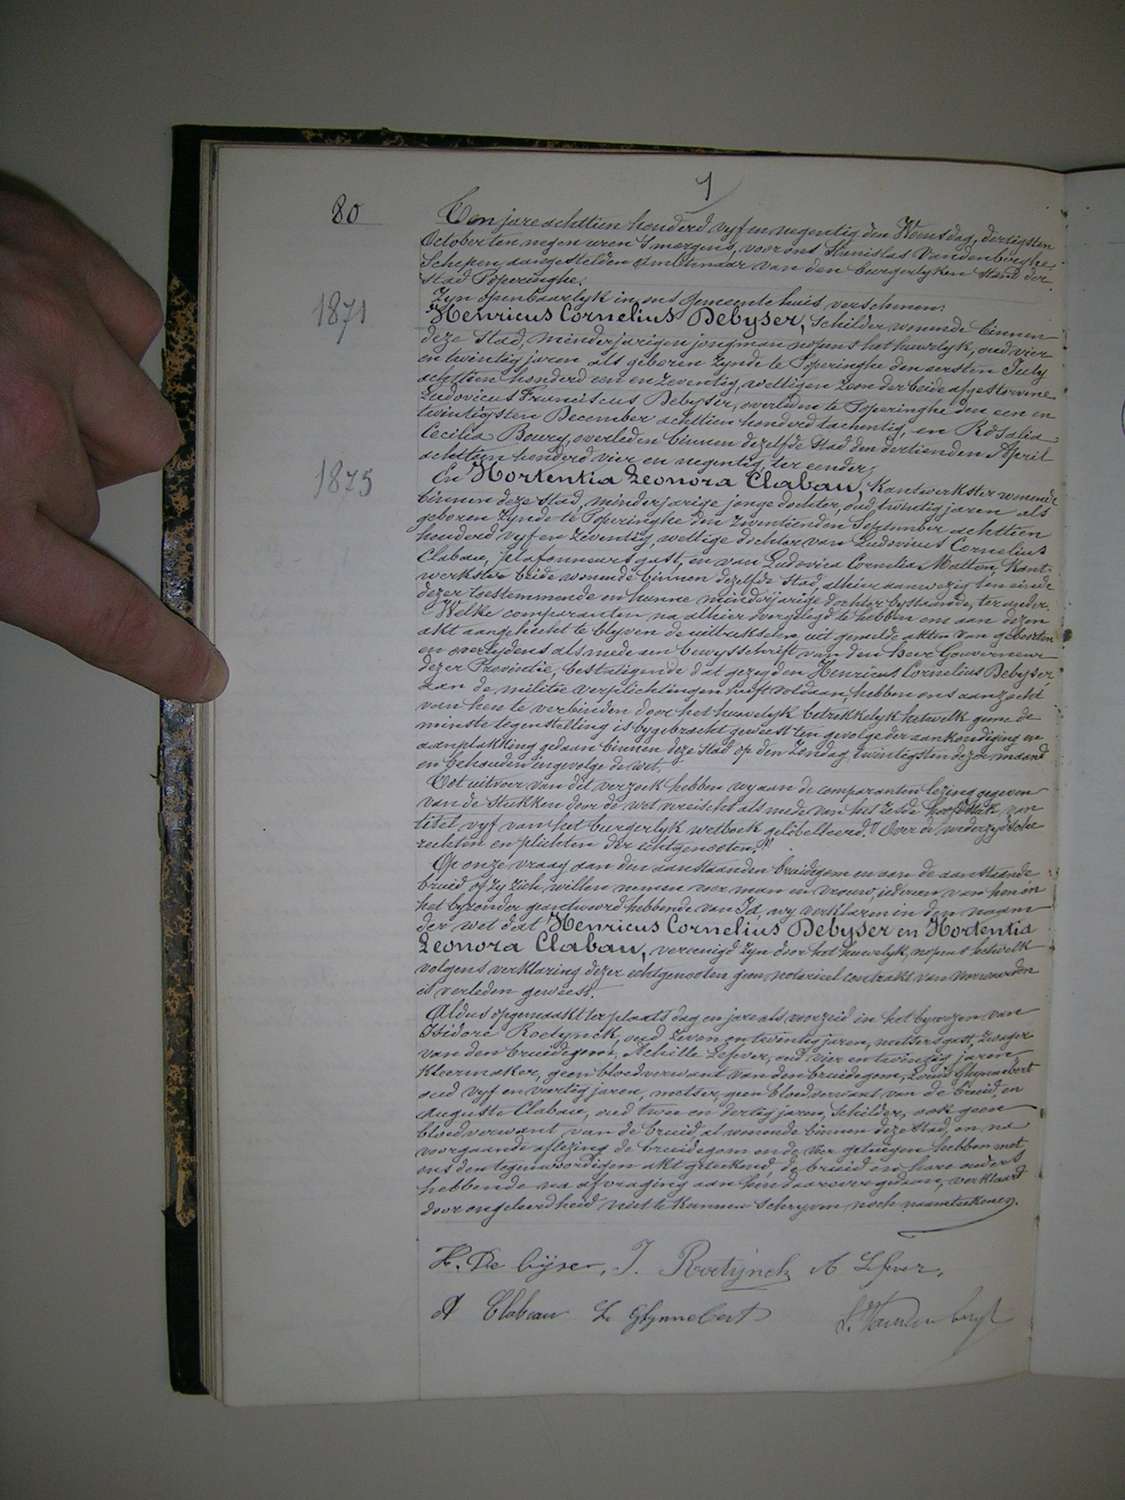 80
Ten jare achttien honderd vyf en negentig den Woensdag, dertigsten
October ten negen uren 's morgens, voor ons Stanislas Vandenberghe,
Schepen, aangestelden Ambtenaar van den burgerlyken stand der
stad Poperinghe.
Zyn openbaarlyk in ons gemeente huis verschenen:
1871
Henricus Cornelius Debyser, Schilder wonende binnen
deze stad, minderjarigen jongman nopens het huwelyk, oud vier
en twintig jaren als geboren zynde te Poperinghe den eersten July
achttien honderd een en zeventig, wettigen zoon der beide afgestorvene
Ludovicus Franciscus Debyser, overleden te Poperinghe den een en
twintigsten December achttien honderd tachentig, en Rosalia
Cecilia Boury, overleden binnen dezelfde stad den dertienden April
achttien honderd vier en negentig, ter eender,
1875
En Hortentia Leonora Clabau, Kantwerkster wonende
binnen deze stad, minderjarige jonge dochter, oud twintig jaren als
geboren zynde te Poperinghe den zeventienden September achttien
honderd vyf en zeventig, wettige dochter van Ludovicus Cornelius
Clabau, plafonneurs gast, en van Ludovica Cornelia Matton, Kant-
werkster beide wonende binnen dezelfde stad, alhier aanwezig ten einde
dezer toestemmende en hunne minderjarige dochter bystaande, ter ander.
Welke comparanten na alhier voorgelegd te hebben om aan dezen
akt aangehecht te blyven de uittreksels uit gemelde akten van geboorten
en overlydens als mede een bewysschrift van den Heer Gouverneur
dezer Provintie, bestatigende dat gezegden Henricus Cornelius Debyser
aan de militie verplichtingen heeft voldaan, hebben ons aanzocht
van hen te verbinden door het huwelyk betrekkelyk hetwelk geene de
minste tegenstelling is bygebracht geweest ten gevolge der aankondiging en
aanplakking gedaan binnen deze stad op den Zondag, twintigsten dezer maand
en behouden ingevolge de wet.
Tot uitvoer van dit verzoek hebben wy aan de comparanten lezing gegeven
van de stukken door de wet vereischt als mede van het zesde hoofdstuk van
titel vyf van het burgerlyk wetboek gelibelleerd: "Over de wederzydsche
rechten en plichten der echtgenooten."
Op onze vraag aan den aanstaanden bruidegom en aan de aanstaande
bruid of zy zich willen nemen voor man en vrouw, iedereen van hen in
het byzonder geantwoord hebbende van Ja, wy verklaren in den naam
der wet dat Henricus Cornelius Debyser en Hortentia
Leonora Clabau, vereenigd zyn door het huwelyk, nopens hetwelk
volgens verklaring dezer echtgenooten geen notarieel contrakt van voorwaarden
is verleden geweest.
Aldus opgemaakt ter plaats dag en jare als voorzeid in het bywezen van
Isidore Roetynck, oud zeven en twintig jaren, metsers gast, zwager
van den bruidegom, Achille Lefever, oud vier en twintig jaren
kleermaker, geen bloedverwant van den bruidegom, Louis Ghynnebert
oud vyf en veertig jaren, metser, geen bloedverwant van de bruid, en
Auguste Clabau, oud twee en dertig jaren, Schilder, ook geen
bloedverwant van de bruid al wonende binnen deze stad, en na
voorgaande aflezing de bruidegom en de vier getuigen hebben met
ons den tegenwoordigen akt geteekend, de bruid en hare ouders
hebbende na afvraging aan hen daarover gedaan, verklaard
door ongeleerdheid niet te kunnen schryven noch naamteekenen.
H. De Cyser, I. Roetynck A Lefever,
A Clabau L Ghynnebert